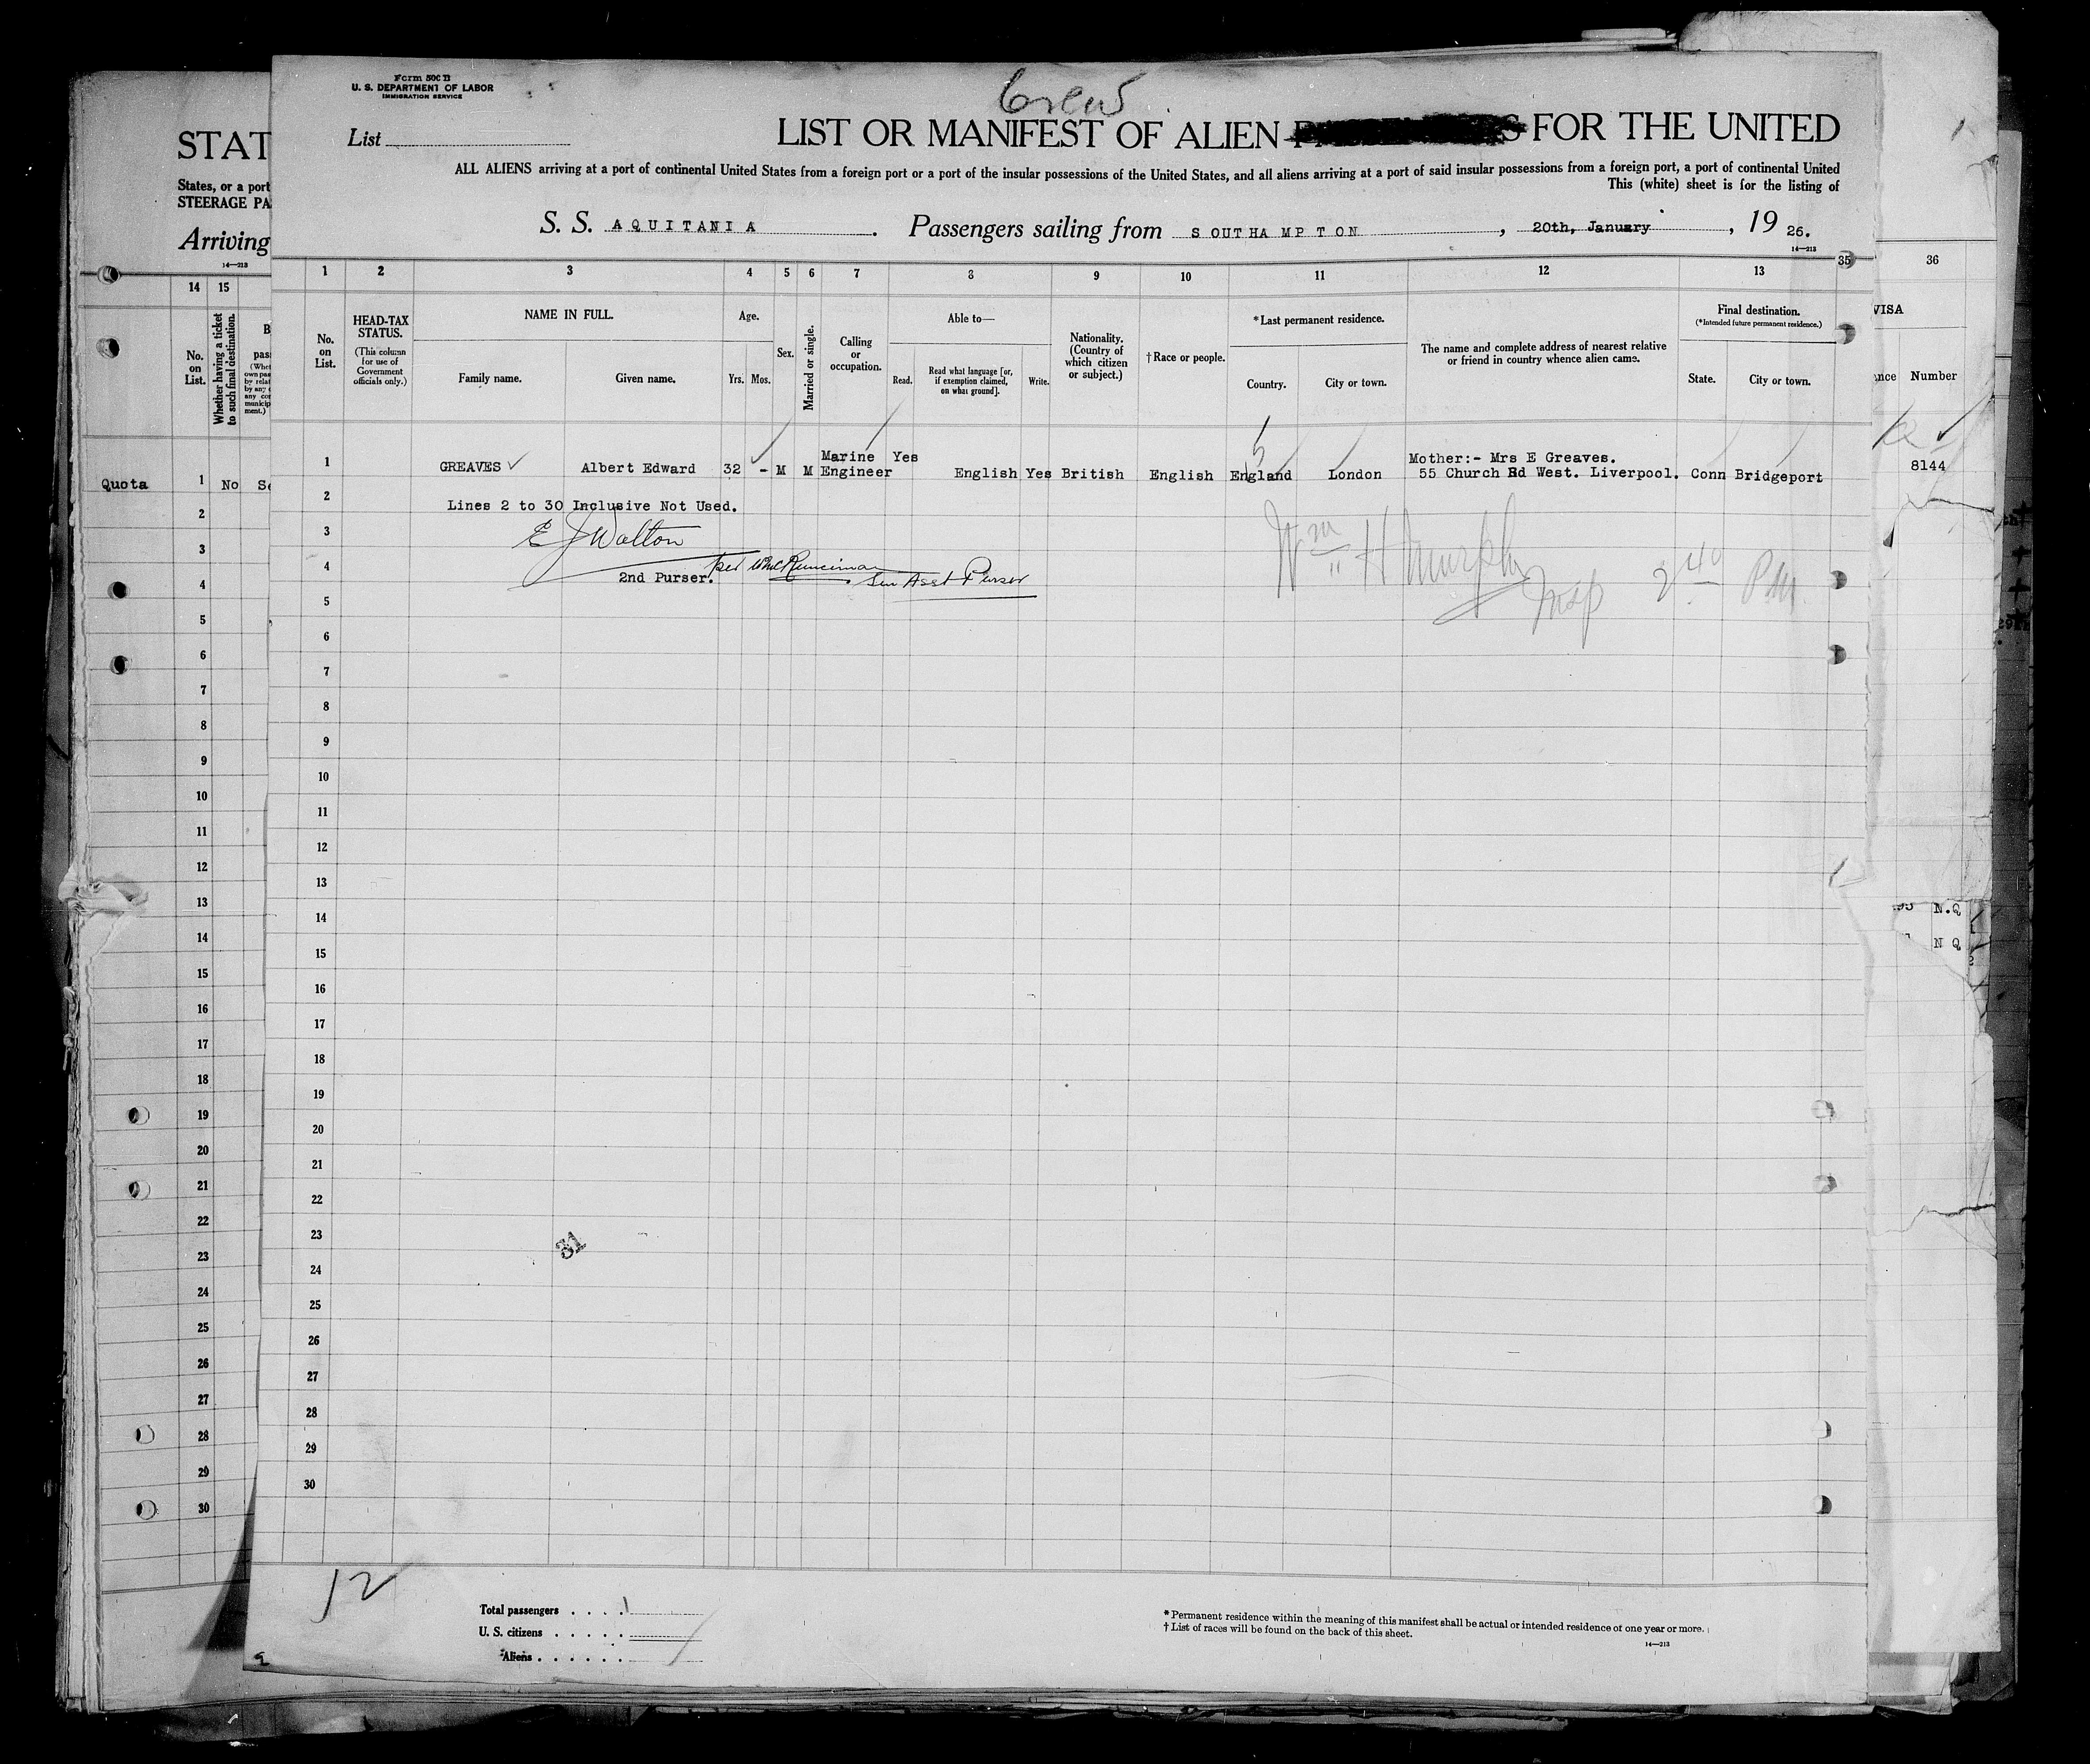 Form 500 B
U. S. DEPARTMENT OF LABOR
IMMIGRATION SERVICE
Crew
List
LIST OR MANIFEST OF ALIEN FOR THE UNITED
ALL ALIENS arriving at a port of continental United States from a foreign port or a port of the insular possessions of the United States, and all aliens arriving at a port of said insular possessions from a foreign port, a port of continental United
This (white) sheet is for the listing of
S. S. AQUITANIA. Passengers sailing from SOUTHAMPTON, 20th, January, 19 26.
14—213
STAT
States, or a port
STEERAGE PA
Arriving
14—213
14 15
No. on List.
Whether having a ticket to such final destination.
Quota 1 No
2
3
4
5
6
7
8
9
10
11
12
13
14
15
16
17
18
19
20
21
22
23
24
25
26
27
28
29
30
1 2 3 4 5 6 7 8 9 10 11 12 13 35 36
No. on List.
HEAD-TAX STATUS.
(This column for use of Government officials only.)
NAME IN FULL.
Family name. Given name.
Age.
Yrs. Mos.
Sex.
Married or single.
Calling or occupation.
Able to—
Read. Read what language [or, if exemption claimed, on what ground]. Write.
Nationality. (Country of which citizen or subject.)
†Race or people.
*Last permanent residence.
Country. City or town.
The name and complete address of nearest relative or friend in country whence alien came.
Final destination.
(*Intended future permanent residence.)
State. City or town.
VISA
Number
8144
1 GREAVES Albert Edward 32 - M M Marine Engineer Yes English Yes British English England London Mother:- Mrs E Greaves. 55 Church Rd West. Liverpool. Conn Bridgeport
2 Lines 2 to 30 Inclusive Not Used.
3 E J Walton
4 2nd Purser. per Runciman Sen Asst Purser
Wm H Murphy Insp 2 40 P.M.
5
6
7
8
9
10
11
12
13
14
15
16
17
18
19
20
21
22
23
31
24
25
26
27
28
29
30
N.Q
N Q
12
Total passengers . . . . 1
U. S. citizens . . . . .
Aliens . . . . . .
* Permanent residence within the meaning of this manifest shall be actual or intended residence of one year or more.
† List of races will be found on the back of this sheet.
14—213